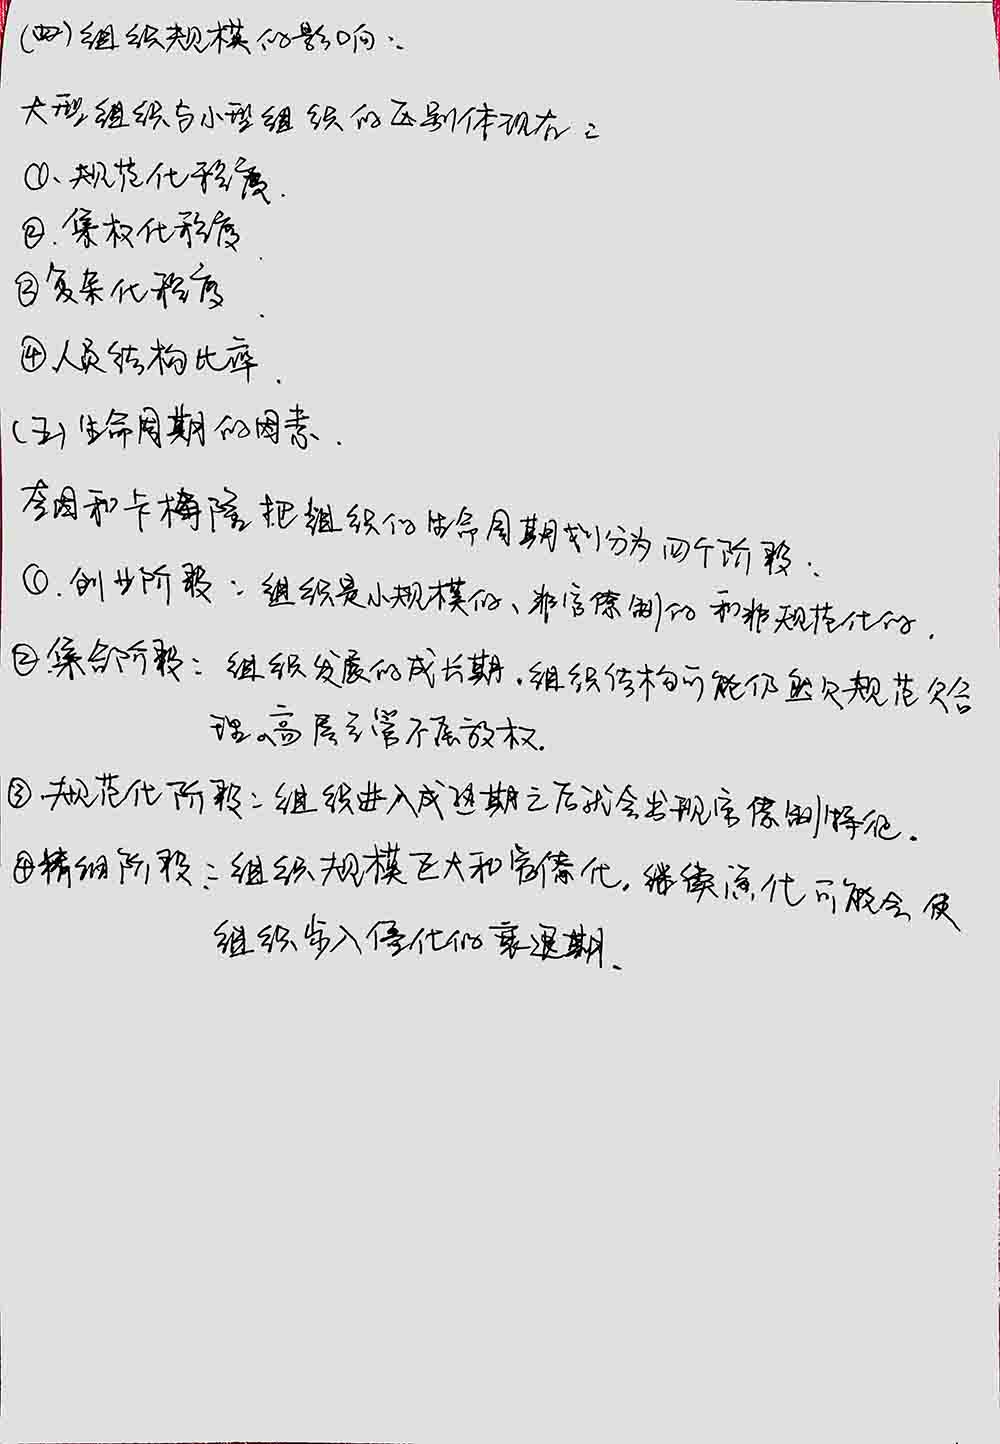 (四)组织规模的影响:
大型组织与小型组织的区别体现在:
①、规范化程度.
②.集权化程度.
③复杂化程度.
④人员结构比率.
(五)生命周期的因素.
奎因和卡梅隆把组织的生命周期划分为四个阶段:
①.创业阶段:组织是小规模的、非官僚制的和非规范化的.
②集合阶段:组织发展的成长期.组织结构可能仍然欠规范欠合
理。高层主管不愿放权.
③.规范化阶段:组织进入成熟期之后就会出现官僚制特征.
④精细阶段:组织规模巨大和官僚化,继续演化可能会使
组织步入僵化的衰退期.